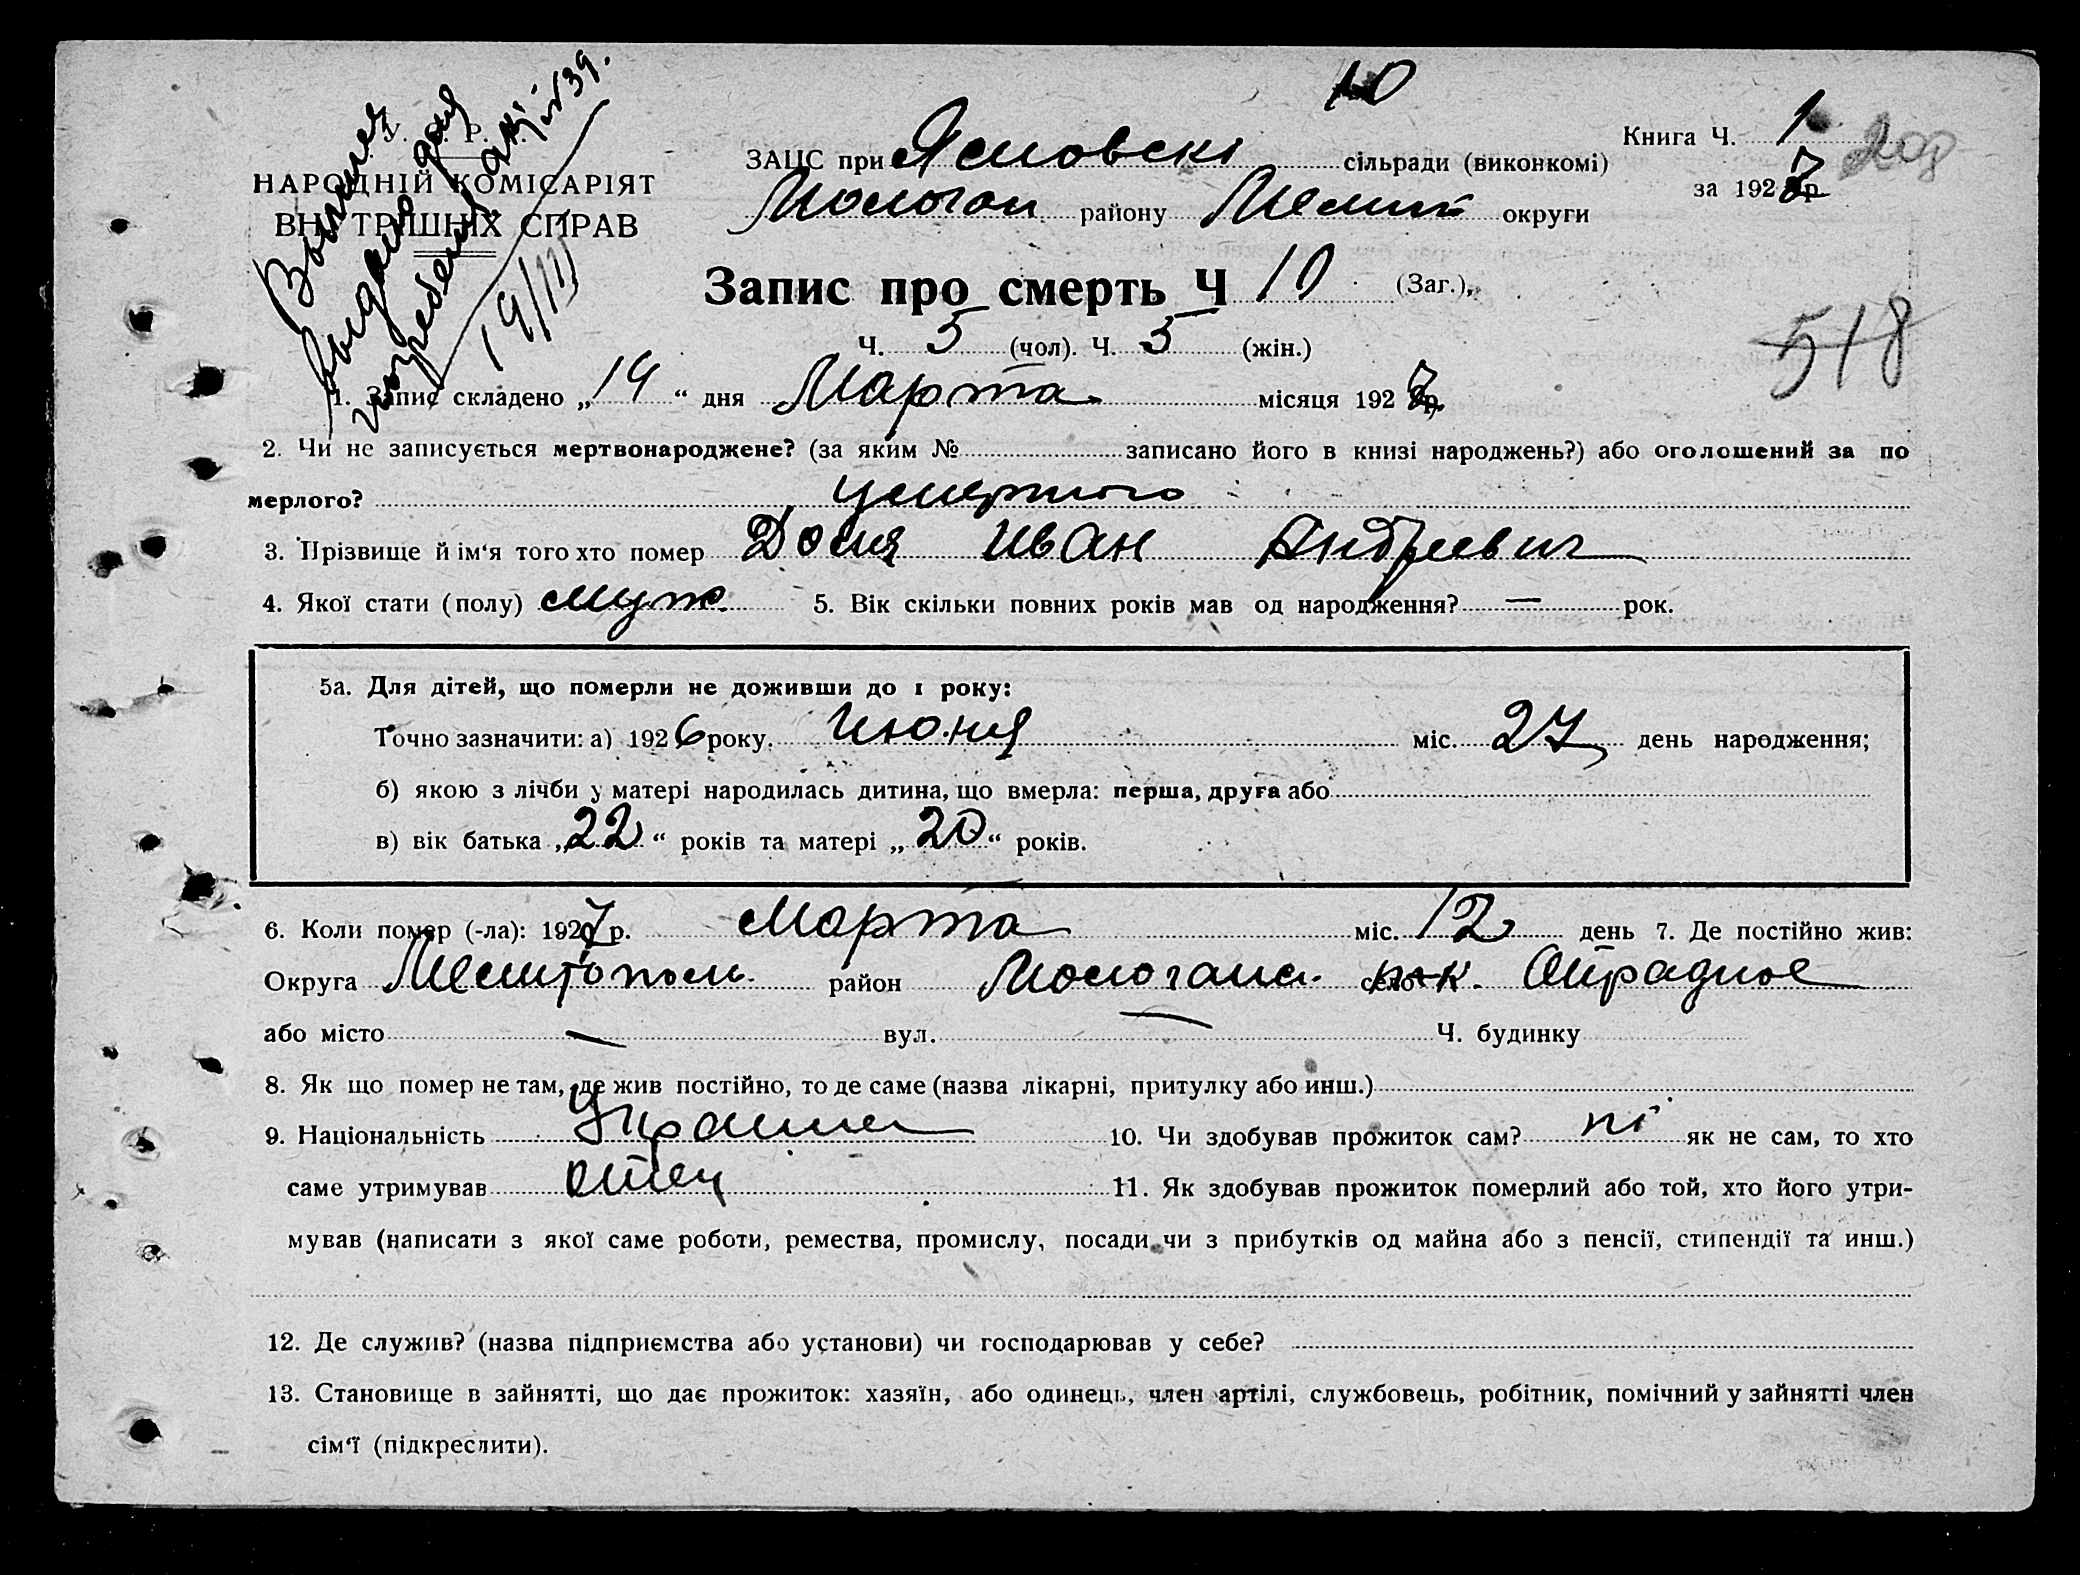 10
У. С. Р. Р.
НАРОДНІЙ КОМІСАРІЯТ
ВНУТРІШНІХ СПРАВ
Выписка
выдана для
погребения
19/III
ЗАЦС при Ясновскі сільради (виконкомі)
Мологан району Мелит округи
Книга Ч. 1
за 1927 р
Запис про смерть Ч 10 (Заг.),
Ч. 5 (чол). Ч. 5 (жін.)
518
1. Запис складено „14“ дня Марта місяця 1927 р,
2. Чи не записується мертвонароджене? (за яким № записано його в книзі народжень?) або оголошений за по
мерлого? умертого
3. Прізвище й ім‘я того хто помер Доля Иван Андреевич
4. Якої стати (полу) муж. 5. Вік скільки повних років мав од народження? — рок.
5а. Для дітей, що померли не доживши до 1 року:
Точно зазначити: а) 1926 року. Июня міс. 27 день народження;
б) якою з лічби у матері народилась дитина, що вмерла: перша, друга або
в) вік батька „22“ років та матері „20“ років.
6. Коли помер (-ла): 1927 р. Марта міс. 12 день 7. Де постійно жив:
Округа Мелитополь. район Мологанс. село Отрадное
або місто — вул. — Ч. будинку
8. Як що помер не там, де жив постійно, то де саме (назва лікарні, притулку або инш.)
9. Національність 10. Чи здобував прожиток сам? ні як не сам, то хто
саме утримував отец 11. Як здобував прожиток померлий або той, хто його утри-
мував (написати з якої саме роботи, ремества, промислу, посади чи з прибутків од майна або з пенсії, стипендії та инш.)
12. Де служив? (назва підприємства або установи) чи господарював у себе?
13. Становище в зайнятті, що дає прожиток: хазяїн, або одинець, член артілі, службовець, робітник, помічний у зайнятті член
сім‘ї (підкреслити).